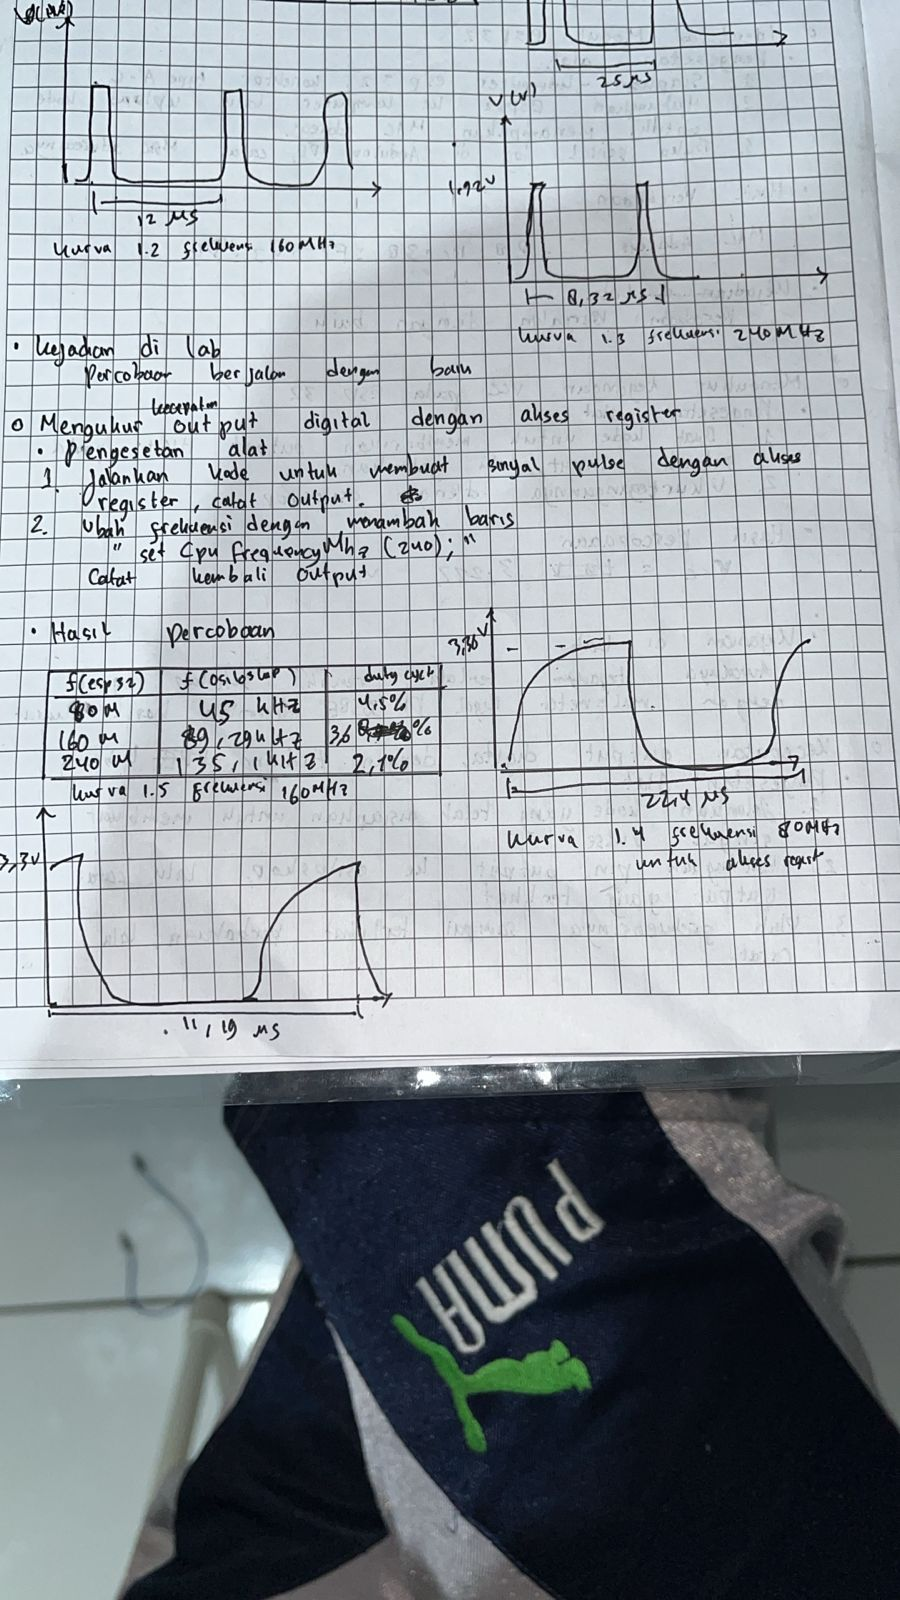 25 μs
V(v)
1,92V
12 μs
kurva 1.2 frekuensi 160MHz
8,32 μs
kurva 1.3 frekuensi 240MHz
• Kejadian di lab
Percobaan berjalan dengan baik
o Mengukur kecepatan output digital dengan akses register
• Pengesetan alat
1. Jalankan kode untuk membuat sinyal pulse dengan akses
register, catat output.
2. Ubah frekuensi dengan menambah baris
" set Cpu FrequencyMhz (240); "
Catat kembali output
• Hasil percobaan
3,36V
f(esp32) f(osiloskop) duty cycle
80M 45 kHz 4,5%
160 M 89,29kHz 36 %
240 M 135,1kHz 2,1%
kurva 1.5 frekuensi 160MHz
22,4 μs
kurva 1.4 frekuensi 80MHz
untuk akses regist
3,3V
11,19 μs
PUMA